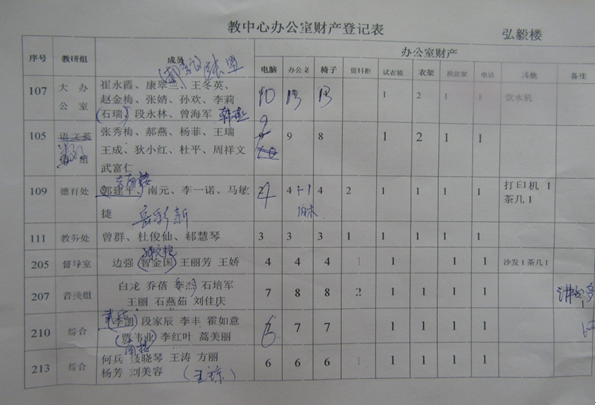 教中心办公室财产登记表 弘毅楼
序号 教研组 成员 办公室财产
电脑 办公桌 椅子 资料柜 试衣镜 衣架 电话 其他 备注
107 大办公室 崔永霞、康翠兰、王冬英、 10 13 13 1 2 1 1 饮水机
赵金梅、张婧、孙欢、李莉
石瑞、段永林、曾海军
105 张秀梅、郝燕、杨菲、王瑞 9 9 8 1 2 1 1
王成、狄小红、杜平、周祥文
武富仁
109 德育处 郭建平、南元、李一诺、马敏 4 4+1 4 2 1 1 1 1 打印机 1
捷 茶几 1
111 教务处 曾群、杜俊仙、郝慧琴 3 3 3 1 1 1 1 1
205 督导室 边强 智金国 王丽芳 王娇 4 4 4 1 1 1 1 沙发 1 茶几 1
207 音美组 白龙 乔蓓 石培军 7 8 8 2 1 1 1 1
王丽 石燕茹 刘佳庆
210 综合 段家辰 李丰 霍如意 6 7 7 1 1 1 1
李红叶 蒿美丽
213 综合 何兵 王涛 方丽 6 6 6 1 1 1 1
杨芳 刘美容 (王琼)